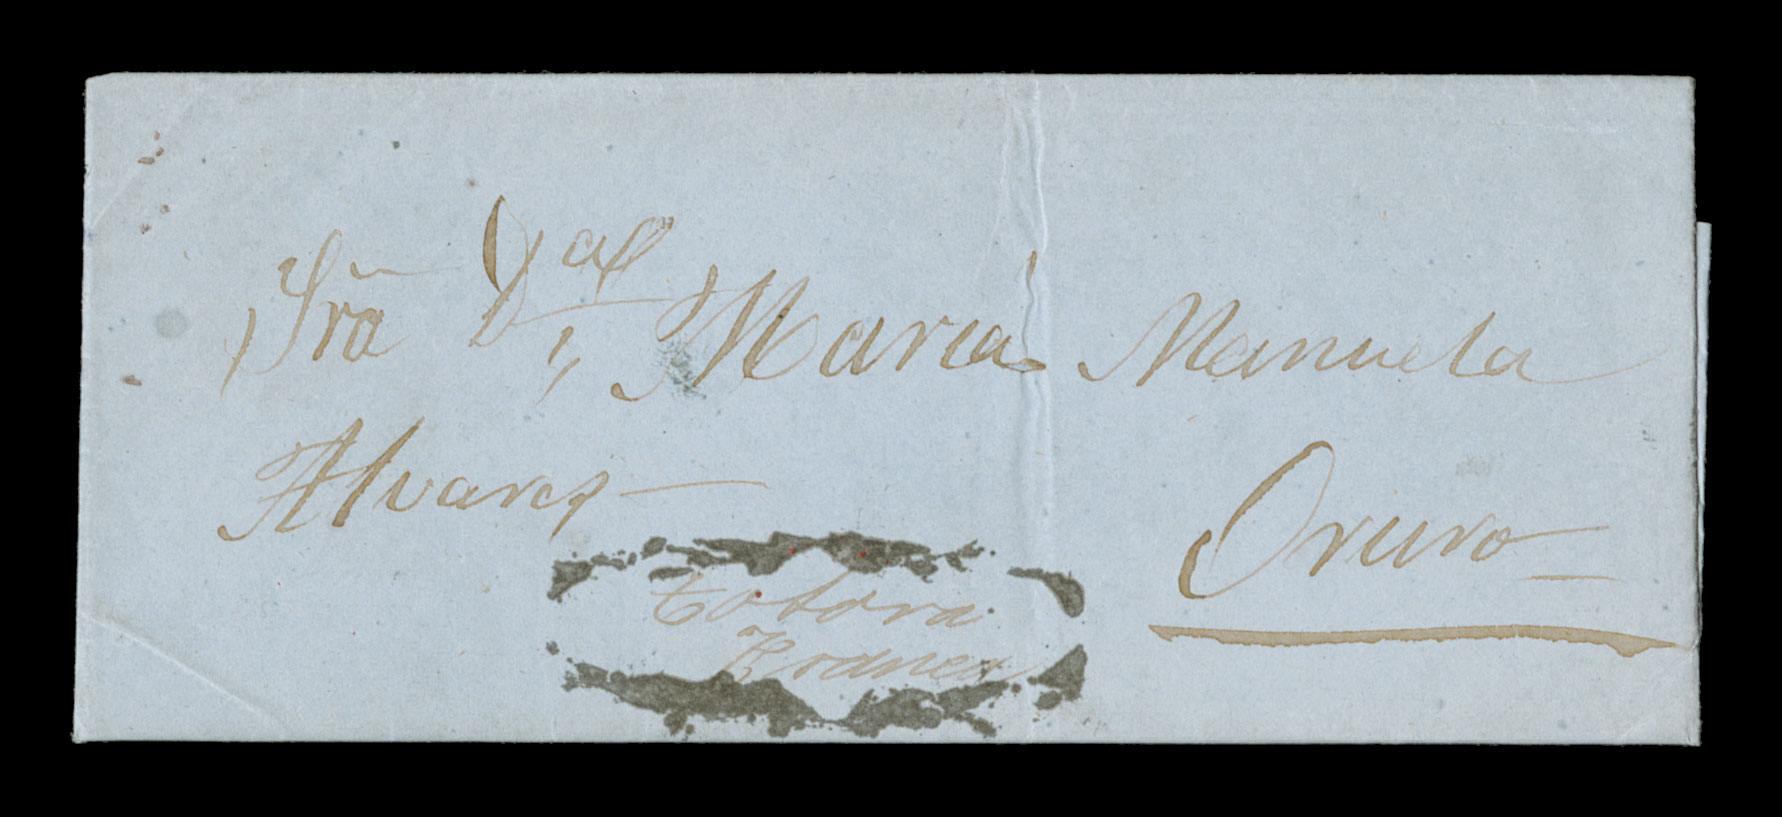 Sra̅ Dª María Manuela
Alvarez
Oruro
Totora
Franca